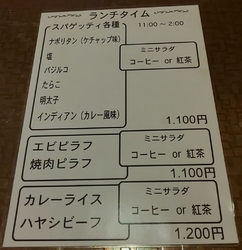 ランチタイム
スパゲッティ各種 11:00～2:00
ナポリタン(ケチャップ味)
塩
バジルコ
たらこ
明太子
インディアン(カレー風味)
ミニサラダ
コーヒー or 紅茶
1.100円
エビピラフ
焼肉ピラフ
ミニサラダ
コーヒー or 紅茶
1.100円
カレーライス
ハヤシビーフ
ミニサラダ
コーヒー or 紅茶
1.200円